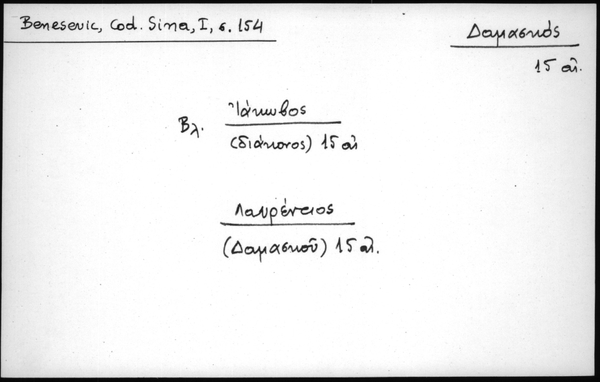 Benesevic, Cod. Sina, I, σ. 154
Δαμασκός
15 αἰ.
Βλ. Ἰάκωβος
(διάκονος) 15 αἰ
Λαυρέντιος
(Δαμασκοῦ) 15 αἰ.